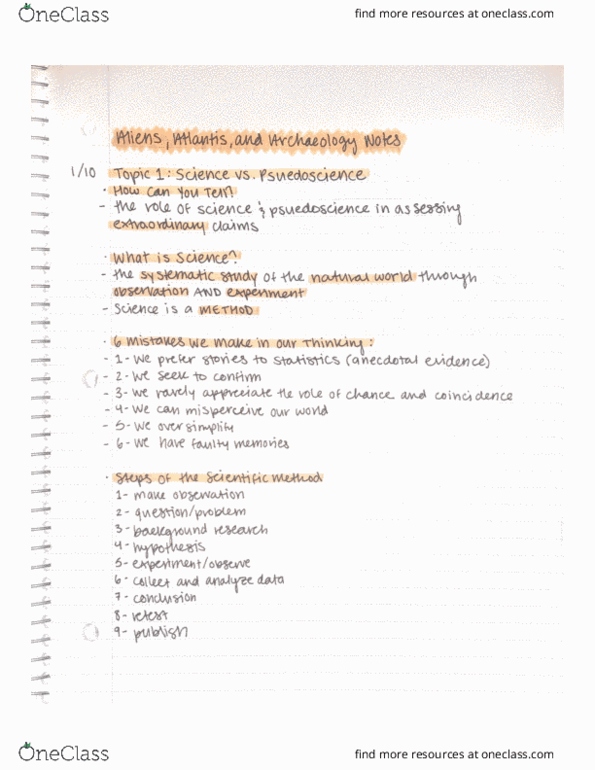 OneClass
find more resources at oneclass.com
Aliens, Atlantis, and Archaeology Notes
1/10 Topic 1: Science vs. Psuedoscience
· How can you Tell?
- the role of science & psuedoscience in assessing
extraordinary claims
· What is Science?
- the systematic study of the natural world through
observation AND experiment
- Science is a METHOD
· 6 mistakes we make in our Thinking:
- 1- we prefer stories to statistics (anecdotal evidence)
- 2- we seek to confirm
- 3- we rarely appreciate the role of chance and coincidence
- 4- we can misperceive our world
- 5- we oversimplify
- 6- we have faulty memories
· Steps of the Scientific Method
1- make observation
2- question/problem
3- background research
4- hypothesis
5- experiment/observe
6- collect and analyze data
7- conclusion
8- retest
9- publish
OneClass
find more resources at oneclass.com